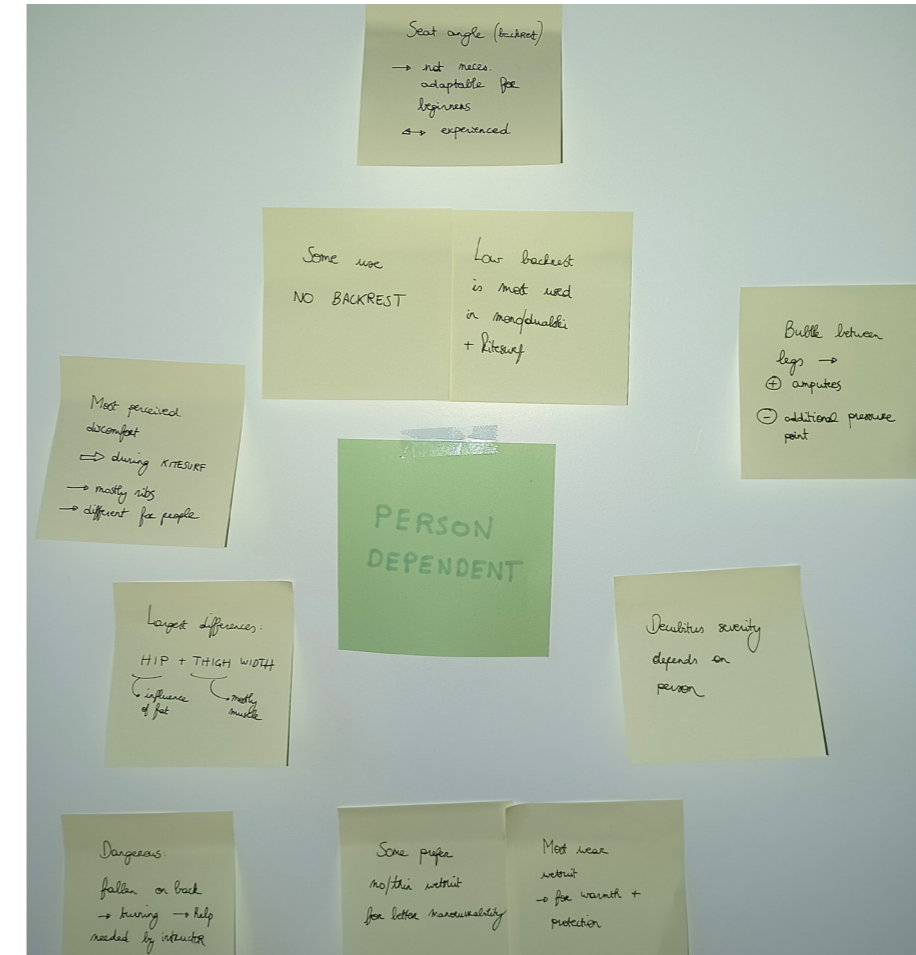 Seat angle (backrest)
→ not neces.
adaptable for
beginners
↔ experienced
Some use
NO BACKREST
Low backrest
is most used
in mono/dualski
+ kitesurf
Bubble between
legs →
⊕ amputees
⊖ additional pressure
point
Most perceived
discomfort
⇒ during KITESURF
→ mostly ribs
→ different for people
PERSON
DEPENDENT
Largest differences:
HIP + THIGH WIDTH
influence
of fat
mostly
muscle
Decubitus severity
depends on
person
Dangerous:
fallen on back
→ turning → help
needed by intructor
Some prefer
no/thin wetsuit
for better manoeuvrability
Most wear
wetsuit
→ for warmth +
protection